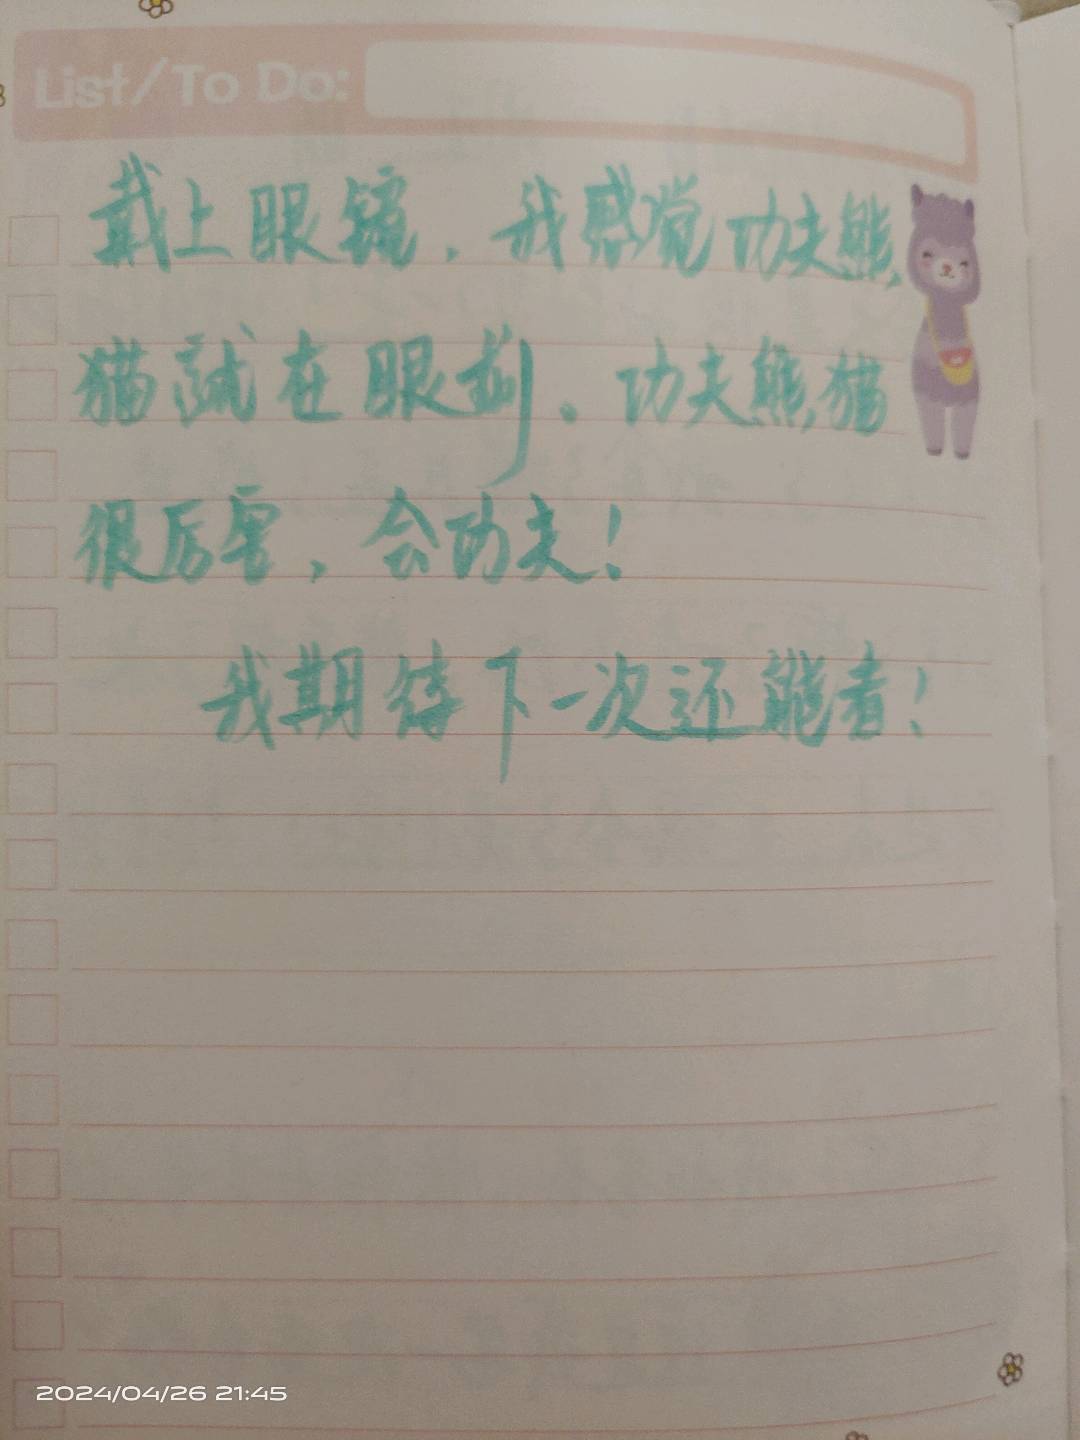 List/To Do:
戴上眼镜，我感觉功夫熊
猫就在眼前。功夫熊猫
很厉害，会功夫！
我期待下一次还能看！
2024/04/26 21:45